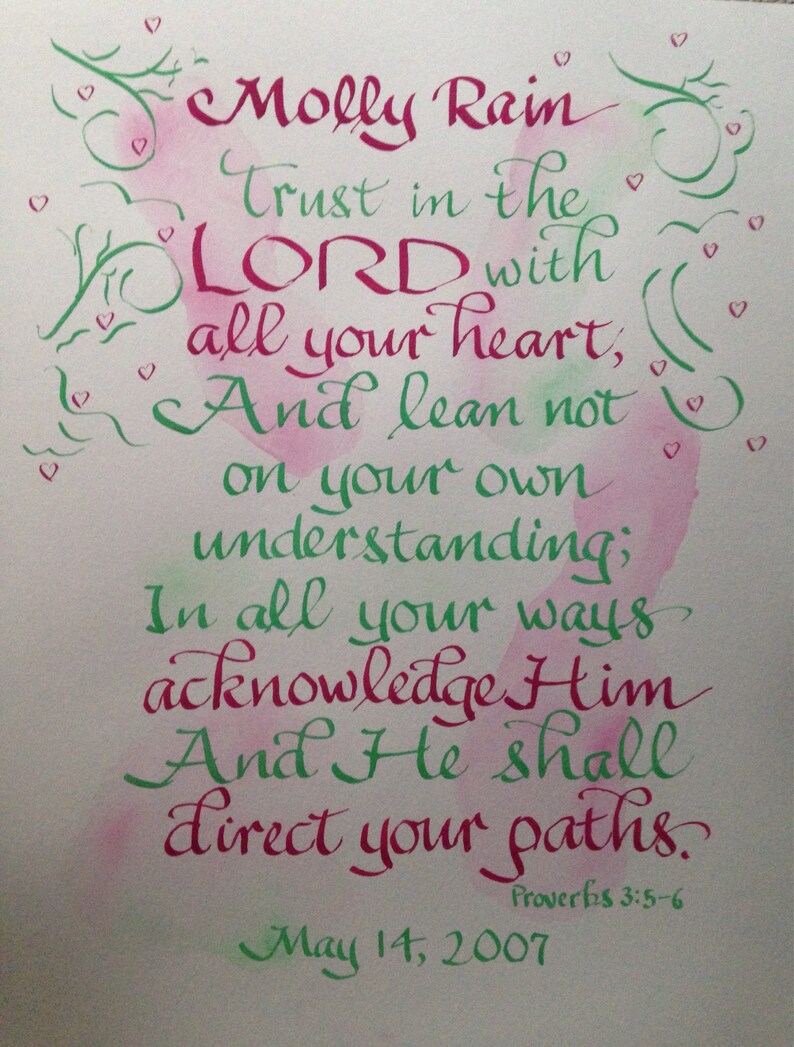 Molly Rain
Trust in the
LORD with
all your heart,
And lean not
on your own
understanding;
In all your ways
acknowledge Him
And He shall
direct your paths.
Proverbs 3:5-6
May 14, 2007